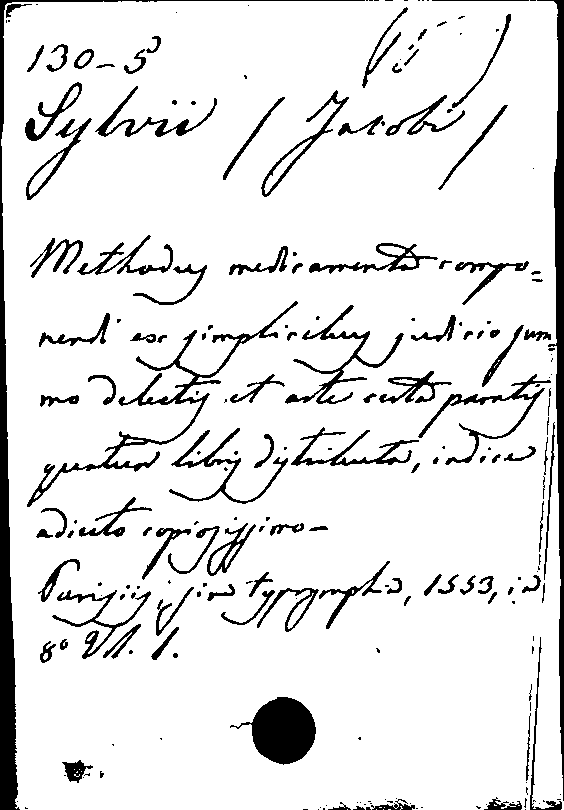 130-5 (15)
Sylvii / Jacobi /
Methodus medicamenta compo=
nendi ex simplicibus judicio sum=
mo delectis et arte certa paratis
quatuor libris distributa, indice
adiecto copiosissimo-
Parisiis, sine typographo, 1553, in
8º Vl. 1.